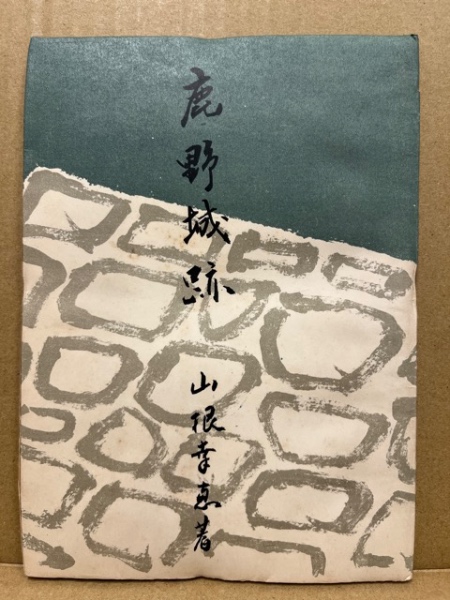 鹿野城跡
山根幸恵著